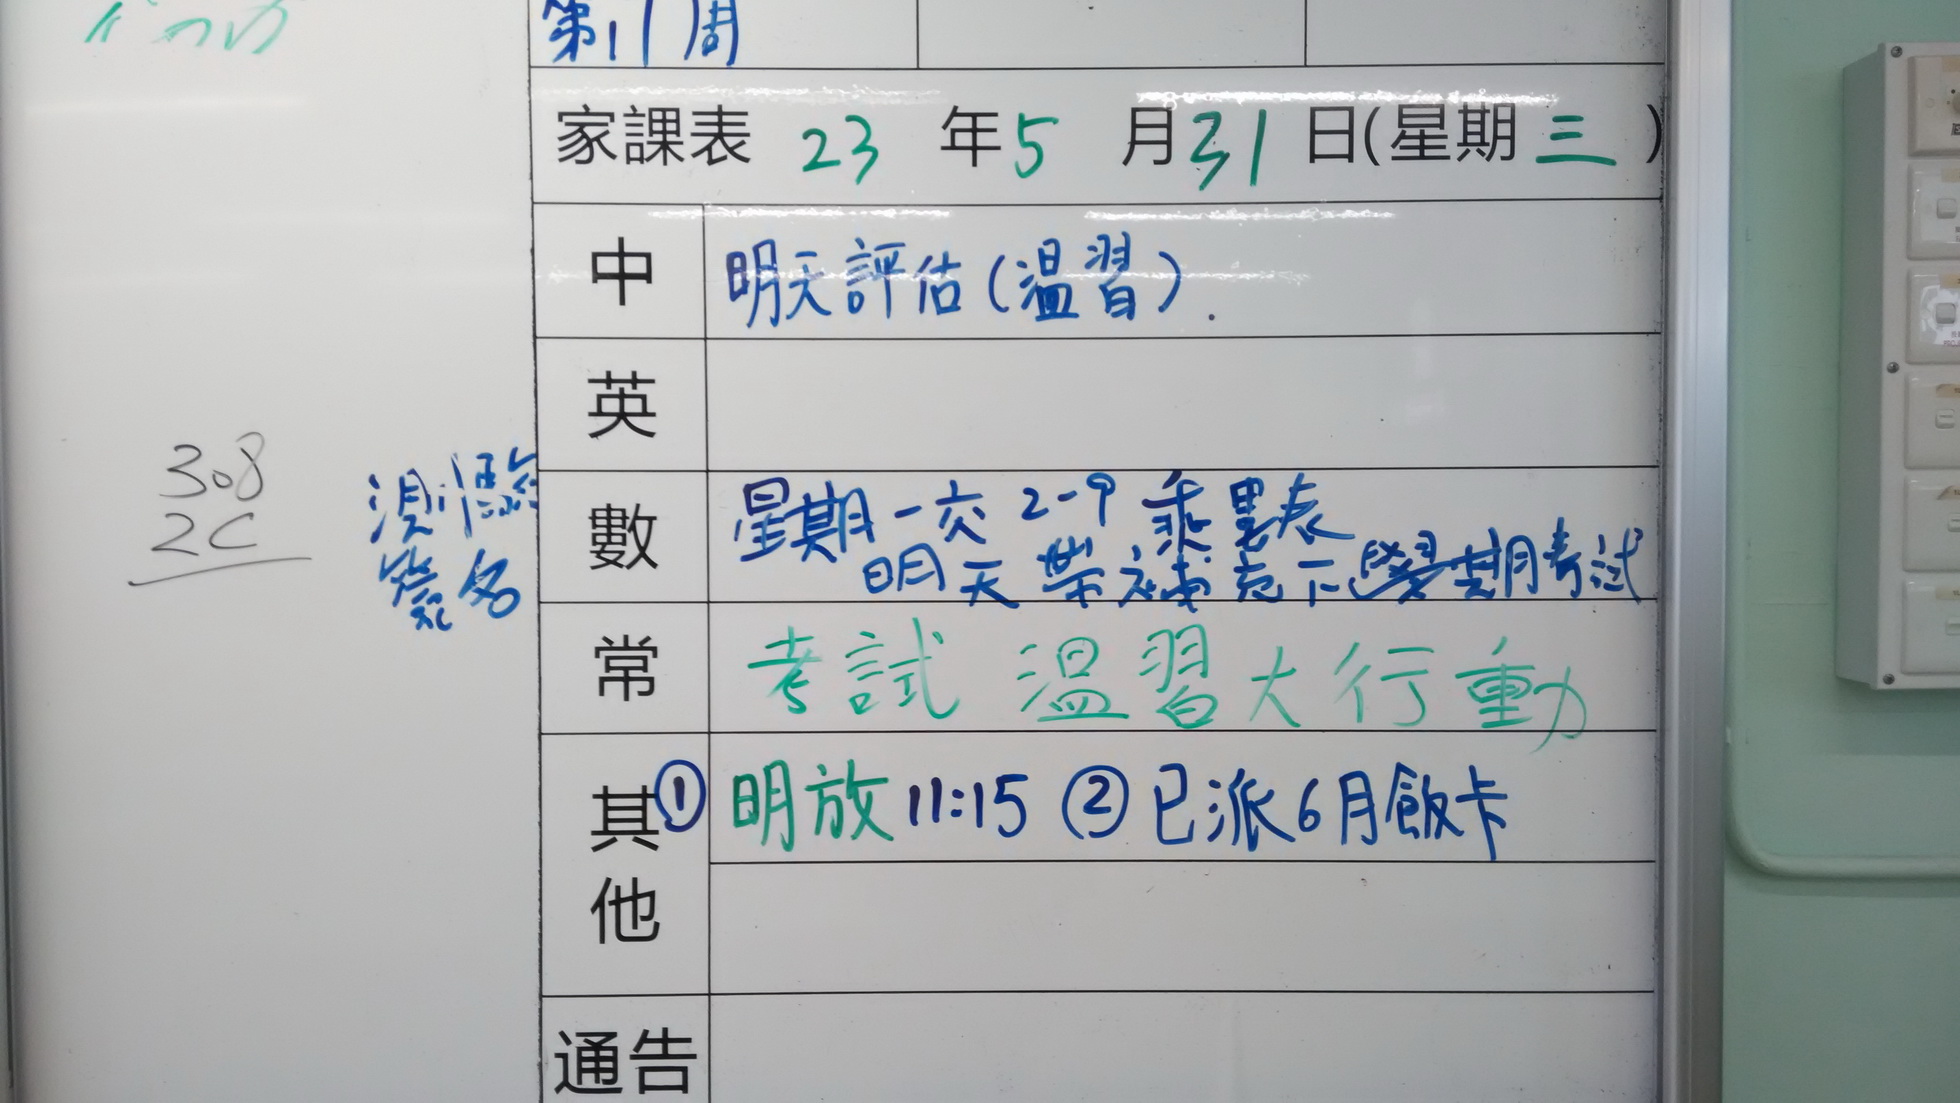 第17周
家課表 23 年 5 月 31 日(星期 三 )
中 明天評估(温習).
英
308
2C
測驗
簽名
數 星期一交 2-9 乘數表
明天帶補充下學期考試
常 考試温習大行動
其他 ① 明放 11:15 ② 已派6月飯卡
通告